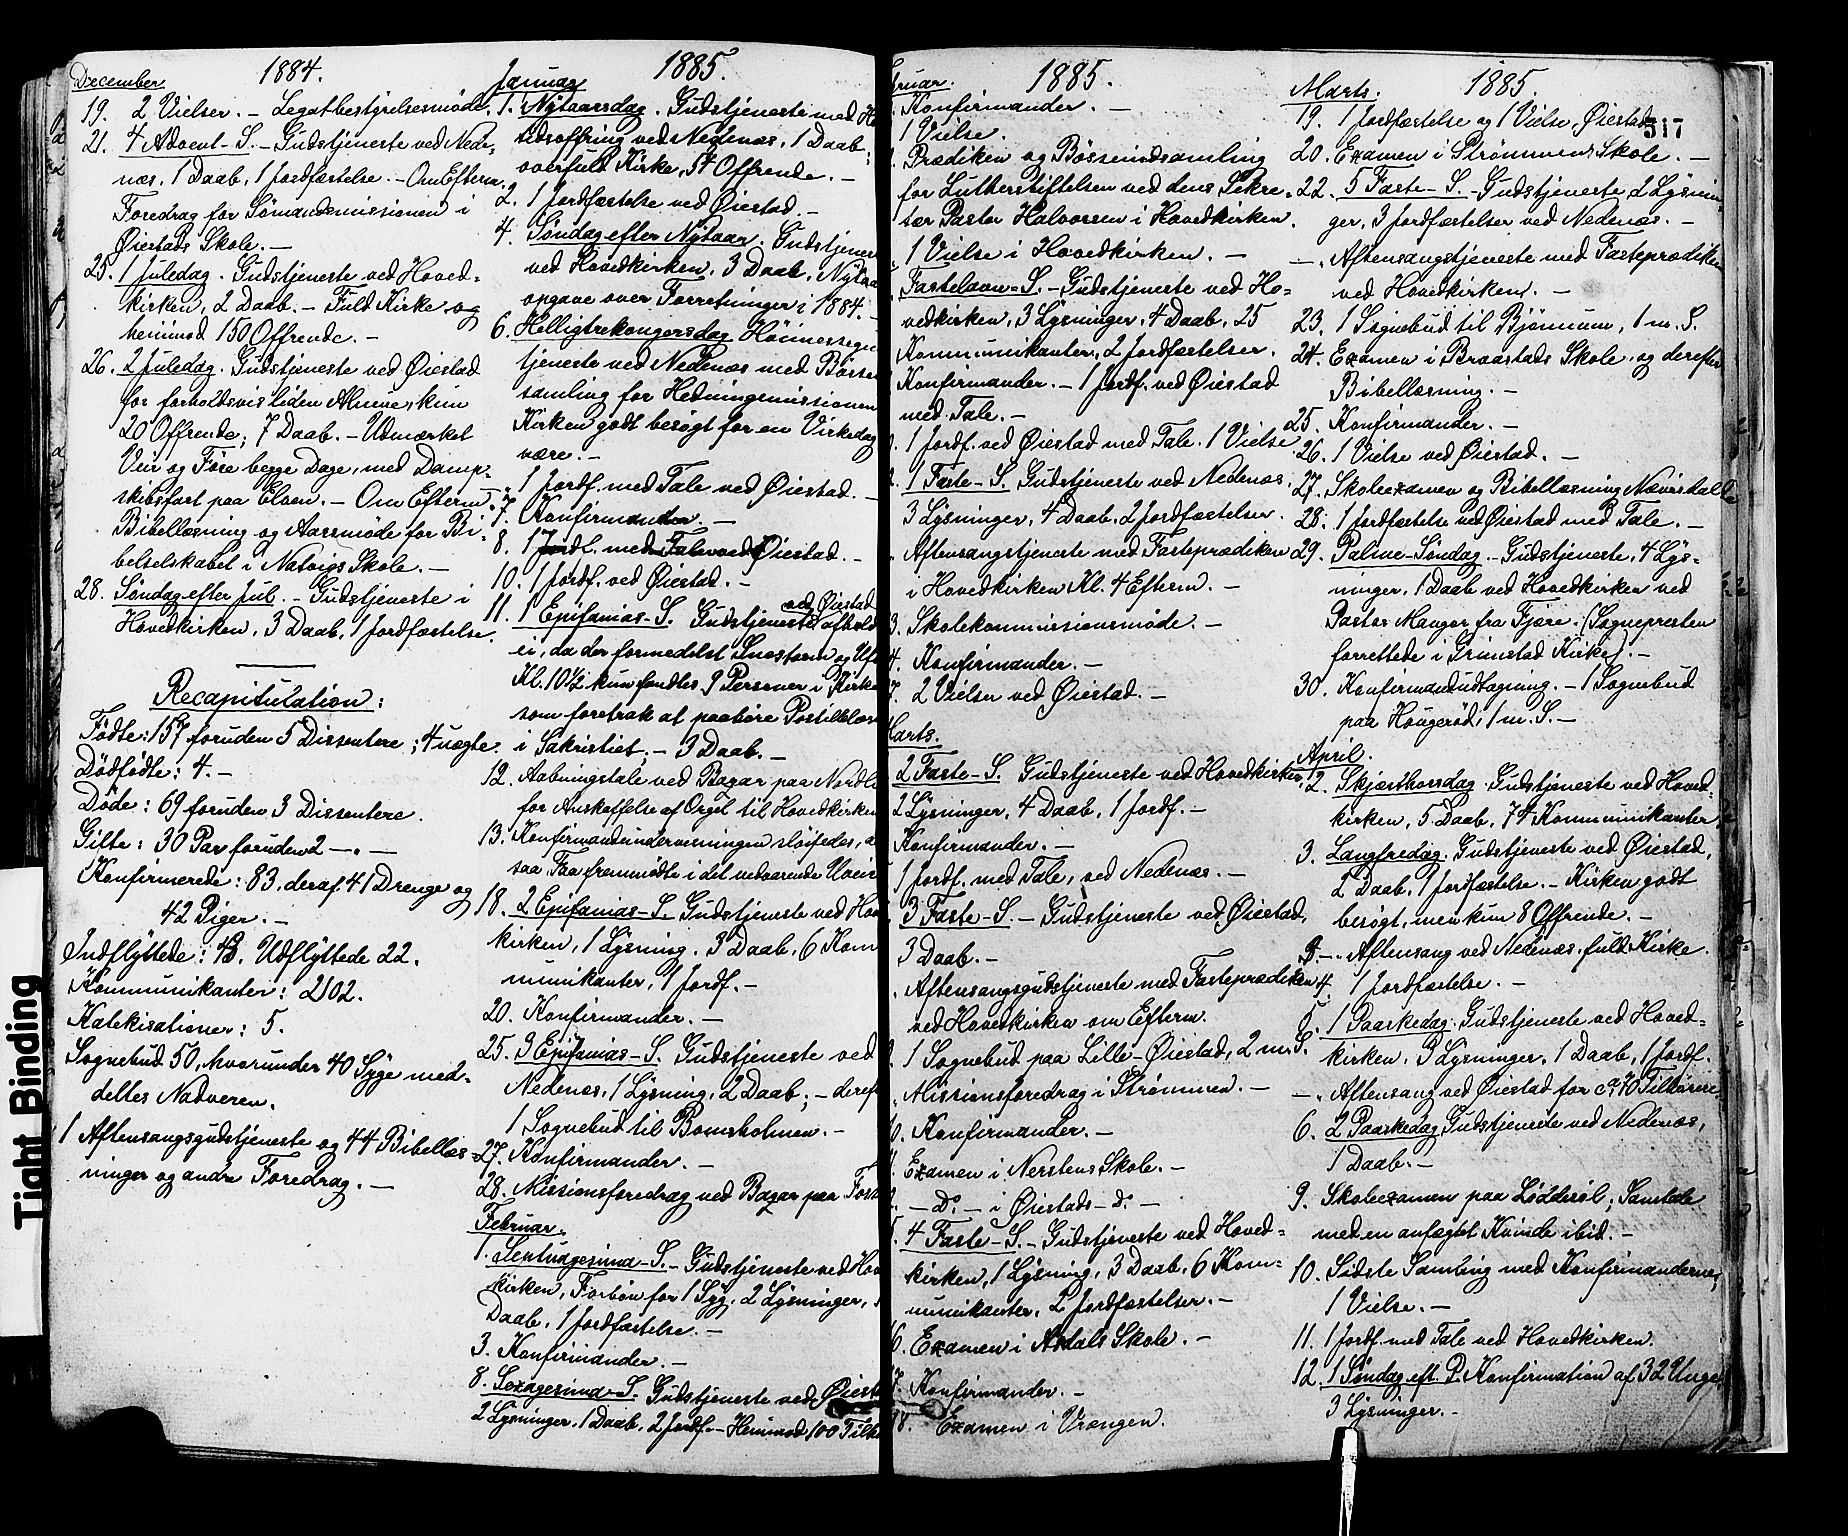 1884.
December
19. 2 Vielser. – Legatbestyrelsesmøde.
21. 4 Advent-S. – Gudstjeneste ved Nede-
næs, 1 Daab, 1 Jordfæstelse. – Om Efterm.
Foredrag for Sømandsmissionen i
Øiestads Skole. –
25. 1 Juledag. Gudstjeneste ved Hoved-
kirken, 2 Daab. – Fuld Kirke og
henimod 150 Offrende. –
26. 2 Juledag. Gudstjeneste ved Øiestad
for forholdsvis liden Almue, kun
20 Offrende; 7 Daab. – Udmærket
Veir og Føre begge Dage, med Damp-
skibsfart paa Elven. – Om Efterm.
Bibellæsning og Aarsmøde for Bi-
belselskabet i Natvigs Skole. –
28. Søndag efter Jul. – Gudstjeneste i
Hovedkirken, 3 Daab, 1 Jordfæstelse.
Recapitulation:
Fødte: 157 foruden 5 Dissentere; 4 uægte.
Dødfødte: 4. –
Døde: 69 foruden 3 Dissentere.
Gifte: 30 Par foruden 2 –„–
Konfirmerede: 83, deraf 41 Drenge og
42 Piger. –
Indflyttede: 43. Udflyttede 22.
Kommunikanter: 202.
Katekisationer: 5.
Sognebud 50, hvorunder 40 Syge med-
deltes Nadveren.
1 Aftensangsgudstjeneste og 44 Bibellæs-
ninger og andre Foredrag. –
1885.
Januar
1. Nytaarsdag. Gudstjeneste med Hø
tidsoffring ved Nedenæs, 1 Daab;
overfuld Kirke, 54 Offrende. –
2. 1 Jordfæstelse ved Øiestad. –
4. Søndag efter Nytaar. Gudstjenest
ved Hovedkirken, 3 Daab, Nytaa
opgave over Forretninger i 1884. –
6. Helligtrekongersdag Høimessegu
tjeneste ved Nedenæs med Bøsse
samling for Hedningemissionen
Kirken godt besøgt for en Virkedag
være. –
–„ 1 Jordf. med Tale ved Øiestad. –
7. Konfirmander. –
8. 1 Jordf. med Tale ved Øiestad. –
10. 1 Jordf. ved Øiestad. –
11. 1 Epifanias-S. Gudstjeneste ved Øiestad afhold
ei, da der formedelst Snestorm og Uf
Kl. 10½ kun fandtes 9 Personer i Kirke
som foretrak at paahøre Postillelæs
i Sakristiet. – 3 Daab. –
12. Aabningstale ved Bazar paa Nordl
for Anskaffelse af Orgel til Hovedkirken
13. Konfirmandundervisningen sløifedes, a
saa Faa fremmødte i det vedvarende Uveir
18. 2 Epifanias-S. Gudstjeneste ved Hov
kirken, 1 Lysning, 3 Daab, 6 Kom
munikanter, 1 Jordf. –
20. Konfirmander. –
25. 3 Epifanias-S. Gudstjeneste ved
Nedenæs, 1 Lysning, 2 Daab; – deref
1 Sognebud til Bomsholmen. –
27. Konfirmander. –
28. Missionsforedrag ved Bazar paa Fos
Februar.
1. Septuagesima-S. – Gudstjeneste ved Hov
kirken, Forbøn for 1 Syg, 2 Lysninger,
Daab, 1 Jordfæstelse. –
3. Konfirmander. –
8. Sexagesima-S. Gudstjeneste ved Øiest
2 Lysninger, 1 Daab, 2 Jordf. – Henimod 100 Tilh
1885.
bruar.
Konfirmander. –
1 Vielse.
Prædiken og Bøsseindsamling
for Lutherstiftelsen ved dens Sekre-
tær Pastor Halvorsen i Hovedkirken.
1 Vielse i Hovedkirken. –
Fastelavn-S. – Gudstjeneste ved Ho-
vedkirken, 3 Lysninger, 4 Daab, 25
Kommunikanter, 2 Jordfæstelser.
Konfirmander. – 1 Jordf. ved Øiestad
med Tale. –
1 Jordf. ved Øiestad med Tale. 1 Vielse
1 Faste-S. Gudstjeneste ved Nedenæs,
3 Lysninger, 4 Daab, 2 Jordfæstelser.
Aftensangstjeneste med Fasteprædiken
i Hovedkirken Kl. 4 Efterm. –
3. Skolekommissionsmøde. –
4. Konfirmander. –
7. 2 Vielser ved Øiestad. –
Marts.
2 Faste-S. Gudstjeneste ved Hovedkirken,
2 Lysninger, 4 Daab, 1 Jordf. –
Konfirmander. –
1 Jordf. med Tale, ved Nedenæs. –
3 Faste-S. – Gudstjeneste ved Øiestad,
3 Daab. –
Aftensangsgudstjeneste med Fasteprædiken
ved Hovedkirken om Efterm.
1 Sognebud paa Lille-Øiestad, 2 m. S.
Missionsforedrag i Strømmen. –
0. Konfirmander. –
Examen i Nerstens Skole. –
– Do. – i Øiestads – Do. –
5. 4 Faste-S. – Gudstjeneste ved Hoved-
kirken, 1 Lysning, 3 Daab, 6 Kom-
munikanter, 2 Jordfæstelser. –
6. Examen i Asdals Skole. –
7. Konfirmander. –
18. Examen i Vrængen.
1885.
517
Marts.
19. 1 Jordfæstelse og 1 Vielse, Øiestad
20. Examen i Strømmens Skole. –
22. 5 Faste-S. – Gudstjeneste, 2 Lysnin-
ger, 3 Jordfæstelser ved Nedenæs. –
–„ Aftensangstjeneste med Fasteprædiken
ved Hovedkirken. –
23. 1 Sognebud til Bjørnum, 1 m. S.
24. Examen i Braastads Skole, og derefter
Bibellæsning. –
25. Konfirmander. –
26. 1 Vielse ved Øiestad. –
27. Skoleexamen og Bibellæsning Næversdalle
28. 1 Jordfæstelse ved Øiestad med Tale. –
29. Palme-Søndag. – Gudstjeneste, 4 Lys-
ninger, 1 Daab ved Hovedkirken ved
Pastor Mangor fra Fjære. (Sognepresten
forrettede i Grimstad Kirke). –
30. Konfirmandudtagning. – 1 Sognebud
paa Hougerød, 1 m. S. –
April.
2. Skjærthorsdag Gudstjeneste ved Hoved-
kirken, 5 Daab, 74 Kommunikanter
3. Langfredag. Gudstjeneste ved Øiestad,
2 Daab, 1 Jordfæstelse. – Kirken godt
besøgt, men kun 8 Offrende. –
–„ Aftensang ved Nedenæs, fuld Kirke.
4. 1 Jordfæstelse. –
5. 1 Paaskedag. Gudstjeneste ved Hoved-
kirken, 3 Lysninger, 1 Daab, 1 Jordf.
–„ Aftensang ved Øiestad for ca. 70 Tilhørere
6. 2 Paaskedag Gudstjeneste ved Nedenæs,
1 Daab. –
9. Skoleexamen paa Løddesøl; Samtale
med en anfægtet Kvinde ibid. –
10. Sidste Samling med Konfirmanderne;
1 Vielse. –
11. 1 Jordf. med Tale ved Hovedkirken.
12. 1 Søndag eft. P. Konfirmation af 32 Unge,
3 Lysninger. –
Tight Binding